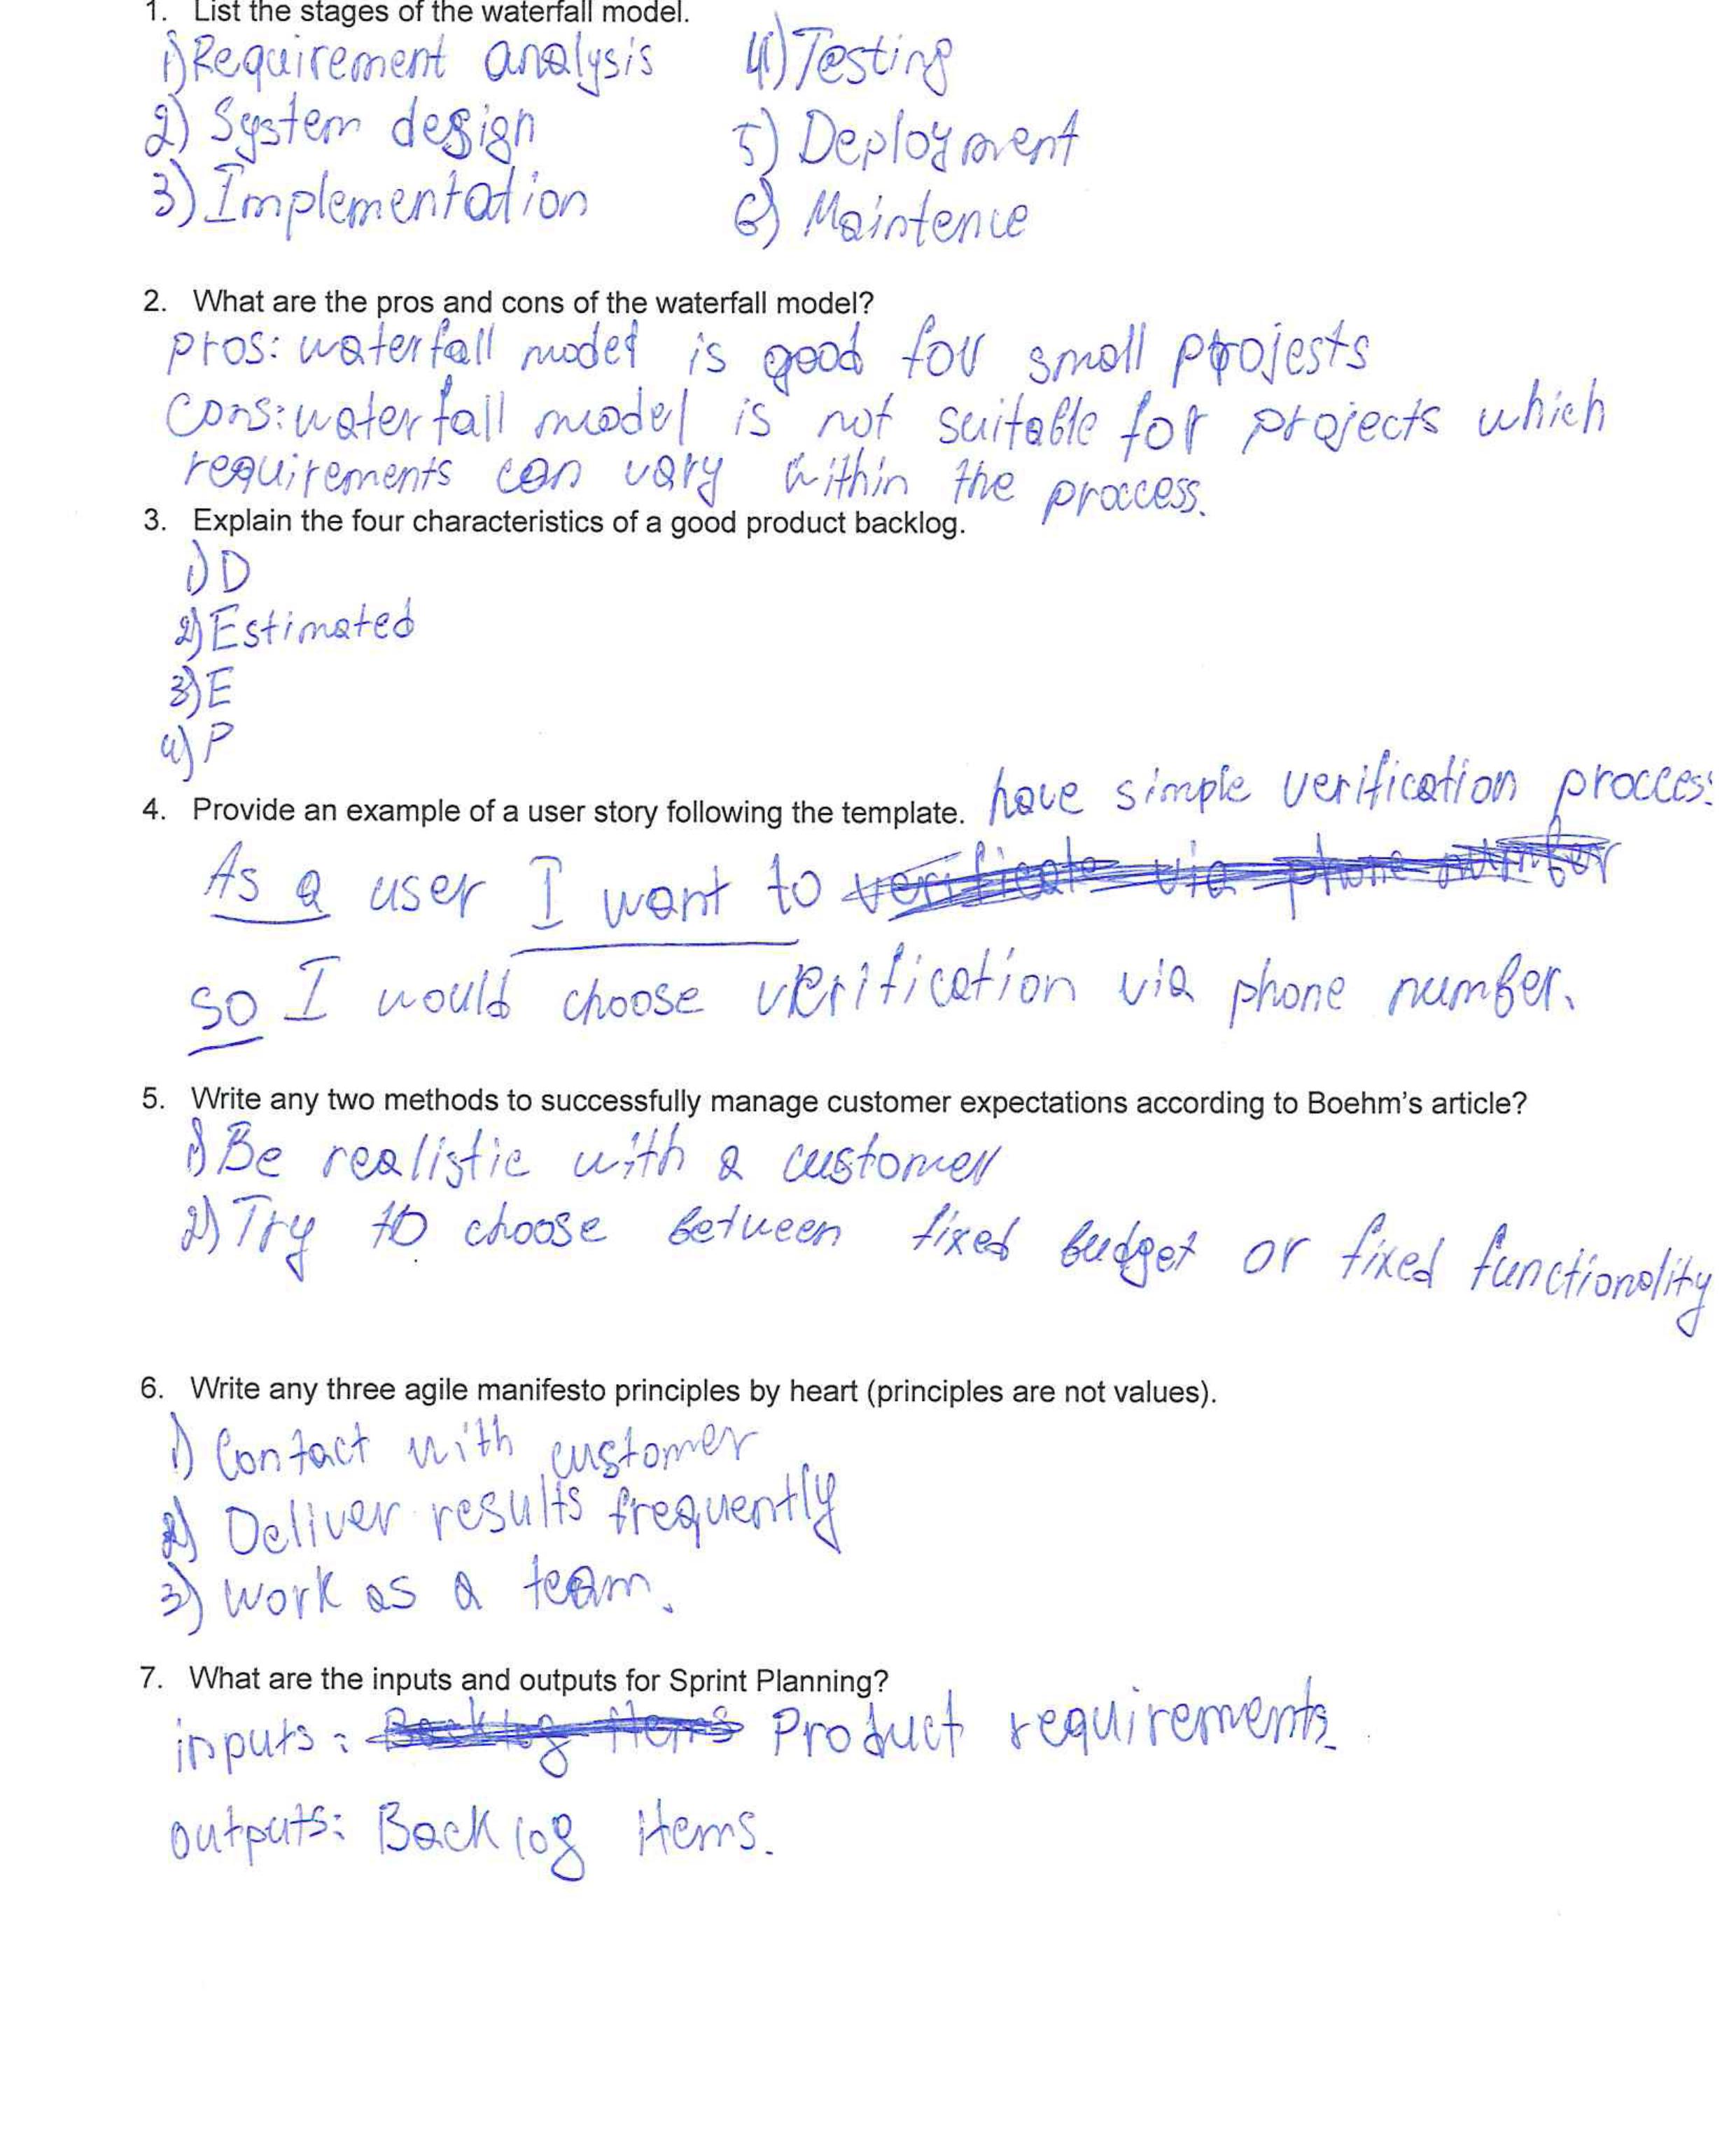 1. List the stages of the waterfall model.
1) Requirement analysis
2) System design
3) Implementation
4) Testing
5) Deployment
6) Maintence
2. What are the pros and cons of the waterfall model?
pros: waterfall model is good for small projests
cons: waterfall model is not suitable for projects which
requirements can vary within the proccess.
3. Explain the four characteristics of a good product backlog.
1) D
2) Estimated
3) E
4) P
4. Provide an example of a user story following the template.
have simple verification proccess
As a user I want to verificate via phone number
so I would choose verification via phone number.
5. Write any two methods to successfully manage customer expectations according to Boehm's article?
1) Be realistic with a customer
2) Try to choose between fixed budget or fixed functionality
6. Write any three agile manifesto principles by heart (principles are not values).
1) Contact with customer
2) Deliver results frequently
3) work as a team.
7. What are the inputs and outputs for Sprint Planning?
inputs: Backlog items Product requirements.
outputs: Backlog items.